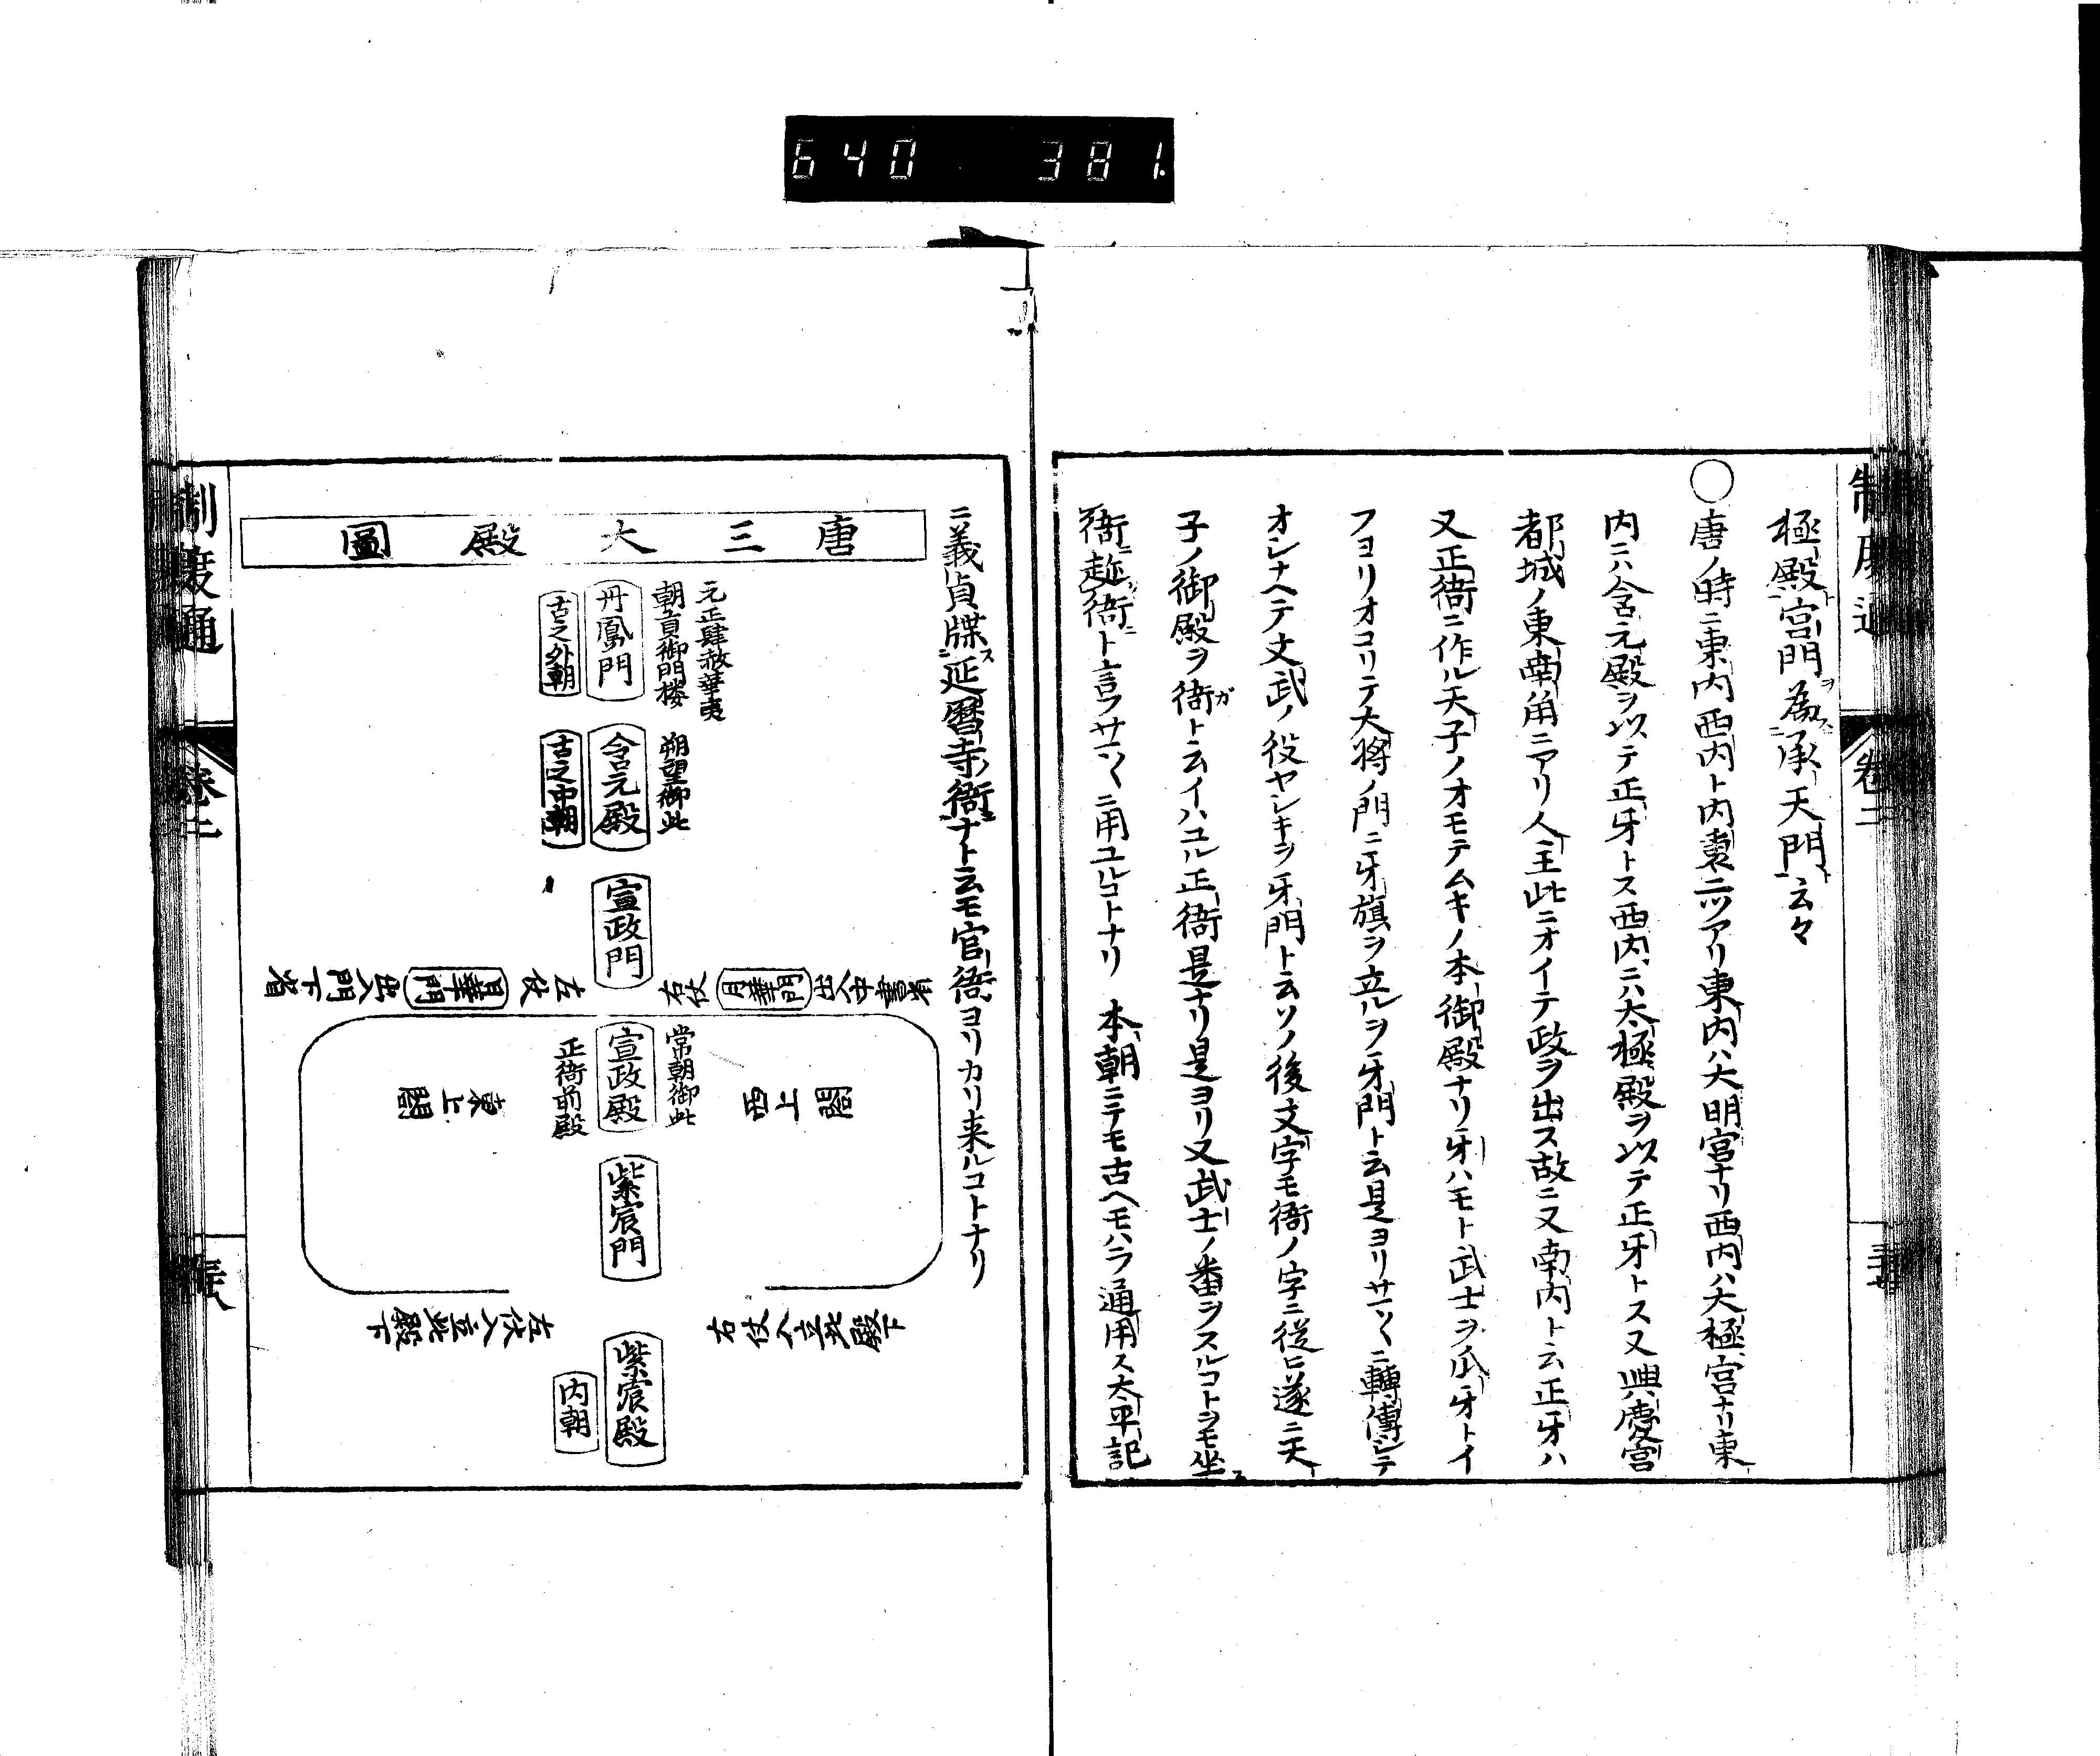 640 381.
制度通
卷二
極殿宮門為承天門云々
○唐ノ時ニ東内西内ト内裏二ツアリ東内ハ大明宮ナリ西内ハ大極宮ナリ東
内ニハ含元殿ヲ以テ正牙トス西内ニハ大極殿ヲ以テ正牙トス又興慶宮
都城ノ東南角ニアリ人主此ニオイテ政ヲ出ス故ニ又南内ト云正牙ハ
又正衙ニ作ル天子ノオモテムキノ本御殿ナリ牙ハモト武士ヲ爪牙トイ
フヨリオコリテ大将ノ門ニ牙旗ヲ立ルヲ牙門ト云是ヨリサマ〱ニ轉傳シテ
オシナヘテ文武ノ役ヤシキヲ牙門ト云ソノ後文字モ衙ノ字ニ従ヒ遂ニ天
子ノ御殿ヲ衙ト云イハユル正衙是ナリ是ヨリ又武士ノ番ヲスルコトヲモ坐
衙趍衙ト言フサマ〱ニ用ユルコトナリ 本朝ニテモ古ヘモハラ通用ス太平記
ニ義貞牒延暦寺衙ナト云モ官衙ヨリカリ来ルコトナリ
唐三大殿圖
元正肆赦華夷
朝貢御門楼
丹鳳門
古之外朝
朔望御此
含元殿
古之中朝
宣政門
右仗 月華門 出入中書省
左仗 日華門 出入門下省
常朝御此
宣政殿
正衙前殿
西上閤
東上閤
紫宸門
右仗入立此殿下
左仗入立此殿下
紫宸殿
内朝
制度通
卷二